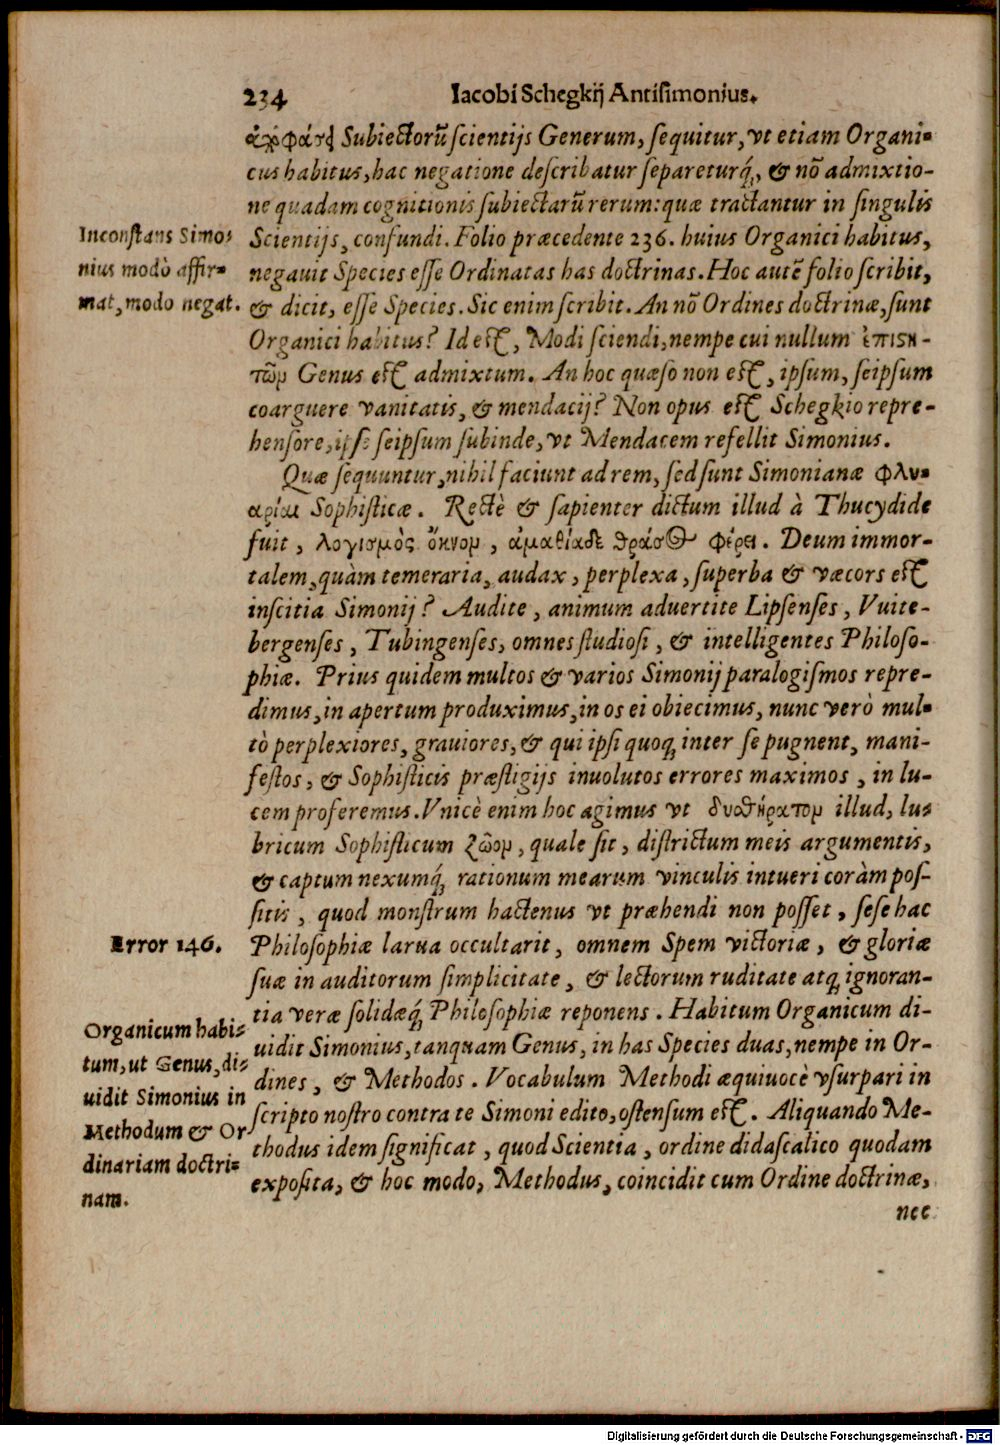 234 Iacobi Schegkij Antisimonius.
Subiectorũ scientijs Generum, sequitur, vt etiam Organi-
cus habitus, hac negatione describatur separeturq́;, & nõ admixtio-
ne quadam cognitionis subiectarũ rerum: quæ tractantur in singulis
Scientijs, confundi. Folio præcedente 236. huius Organici habitus,
negauit Species esse Ordinatas has doctrinas. Hoc autẽ folio scribit,
& dicit, esse Species. Sic enim scribit. An nõ Ordines doctrinæ, sunt
Organici habitus? Id est, Modi sciendi, nempe cui nullum ἐπιςη-
τῶμ Genus est admixtum. An hoc quæso non est, ipsum, seipsum
coarguere vanitatis, & mendacij? Non opus est Schegkio repre-
hensore, ipse seipsum subinde, vt Mendacem refellit Simonius.
Quæ sequuntur, nihil faciunt ad rem, sed sunt Simonianæ φλυ-
αρίαι Sophisticæ. Rectè & sapienter dictum illud à Thucydide
fuit, λογισμὸς ὄκνομ, ἀμαθίαδε θράσος φέρει. Deum immor-
talem, quàm temeraria, audax, perplexa, superba & væcors est
inscitia Simonij? Audite, animum aduertite Lipsenses, Vuite-
bergenses, Tubingenses, omnes studiosi, & intelligentes Philoso-
phiæ. Prius quidem multos & varios Simonij paralogismos repre-
dimus, in apertum produximus, in os ei obiecimus, nunc verò mul-
tò perplexiores, grauiores, & qui ipsi quoq; inter se pugnent, mani-
festos, & Sophisticis præstigijs inuolutos errores maximos, in lu-
cem proferemus. Vnicè enim hoc agimus vt δυσθήρατομ illud, lu-
bricum Sophisticum ζῶομ, quale sit, districtum meis argumentis,
& captum nexumq́; rationum mearum vinculis intueri coràm pos-
sitis, quod monstrum hactenus vt præhendi non posset, sese hac
Philosophiæ larua occultarit, omnem Spem victoriæ, & gloriæ
suæ in auditorum simplicitate, & lectorum ruditate atq; ignoran-
tia veræ solidæq́; Philosophiæ reponens. Habitum Organicum di-
uidit Simonius, tanquam Genus, in has Species duas, nempe in Or-
dines, & Methodos. Vocabulum Methodi æquiuocè vsurpari in
scripto nostro contra te Simoni edito, ostensum est. Aliquando Me-
thodus idem significat, quod Scientia, ordine didascalico quodam
exposita, & hoc modo, Methodus, coincidit cum Ordine doctrinæ,
nec
Inconstans Simo-
nius modò affir-
mat, modo negat.
Error 146.
Organicum habi-
tum, ut Genus, di-
uidit Simonius in
Methodum & Or
dinariam doctri-
nam.
Digitalisierung gefördert durch die Deutsche Forschungsgemeinschaft - DFG